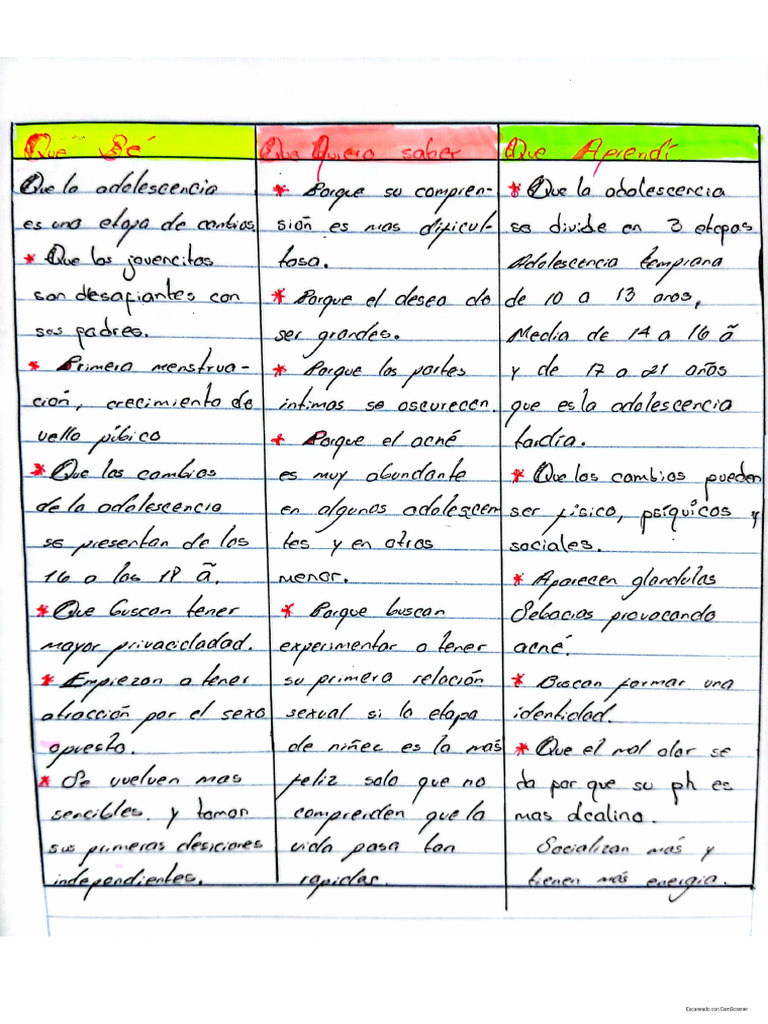 Que Sé
Que la adolescencia
es una etapa de cambios.
* Que los jovencitos
son desafiantes con
sus padres.
* Primera menstrua-
ción, crecimiento de
vello púbico
* Que los cambios
de la adolescencia
se presentan de los
16 a los 18 ã.
* Que buscan tener
mayor privacidadad.
* Empiezan a tener
atracción por el sexo
opuesto.
* Se vuelven mas
sencibles. y tomar
sus primeras desiciones
independientes.
Que Quiero saber
* Porque su compren-
sión es mas dificul-
tosa.
* Porque el deseo de
ser grandes.
* Porque las partes
intimas se oscurecen.
* Porque el acné
es muy abundante
en algunos adolescen
tes y en otros
menor.
* Porque buscan
experimentar o tener
su primera relación
sexual si la etapa
de niñec es la más
feliz solo que no
comprenden que la
vida pasa tan
rapidas.
Que Aprendí
* Que la adolescencia
se divide en 3 etapas
Adolescencia temprana
de 10 a 13 anos,
Media de 14 a 16 ã
y de 17 a 21 años
que es la adolescencia
tardía.
* Que los cambios pueden
ser fisico, psíquicos y
sociales.
* Aparecen glandulas
Sebacias provocando
acné.
* Buscan formar una
identidad.
* Que el mal olor se
da por que su ph es
mas alcalino.
Socializan más y
tienen más energia.
Escaneado con CamScanner